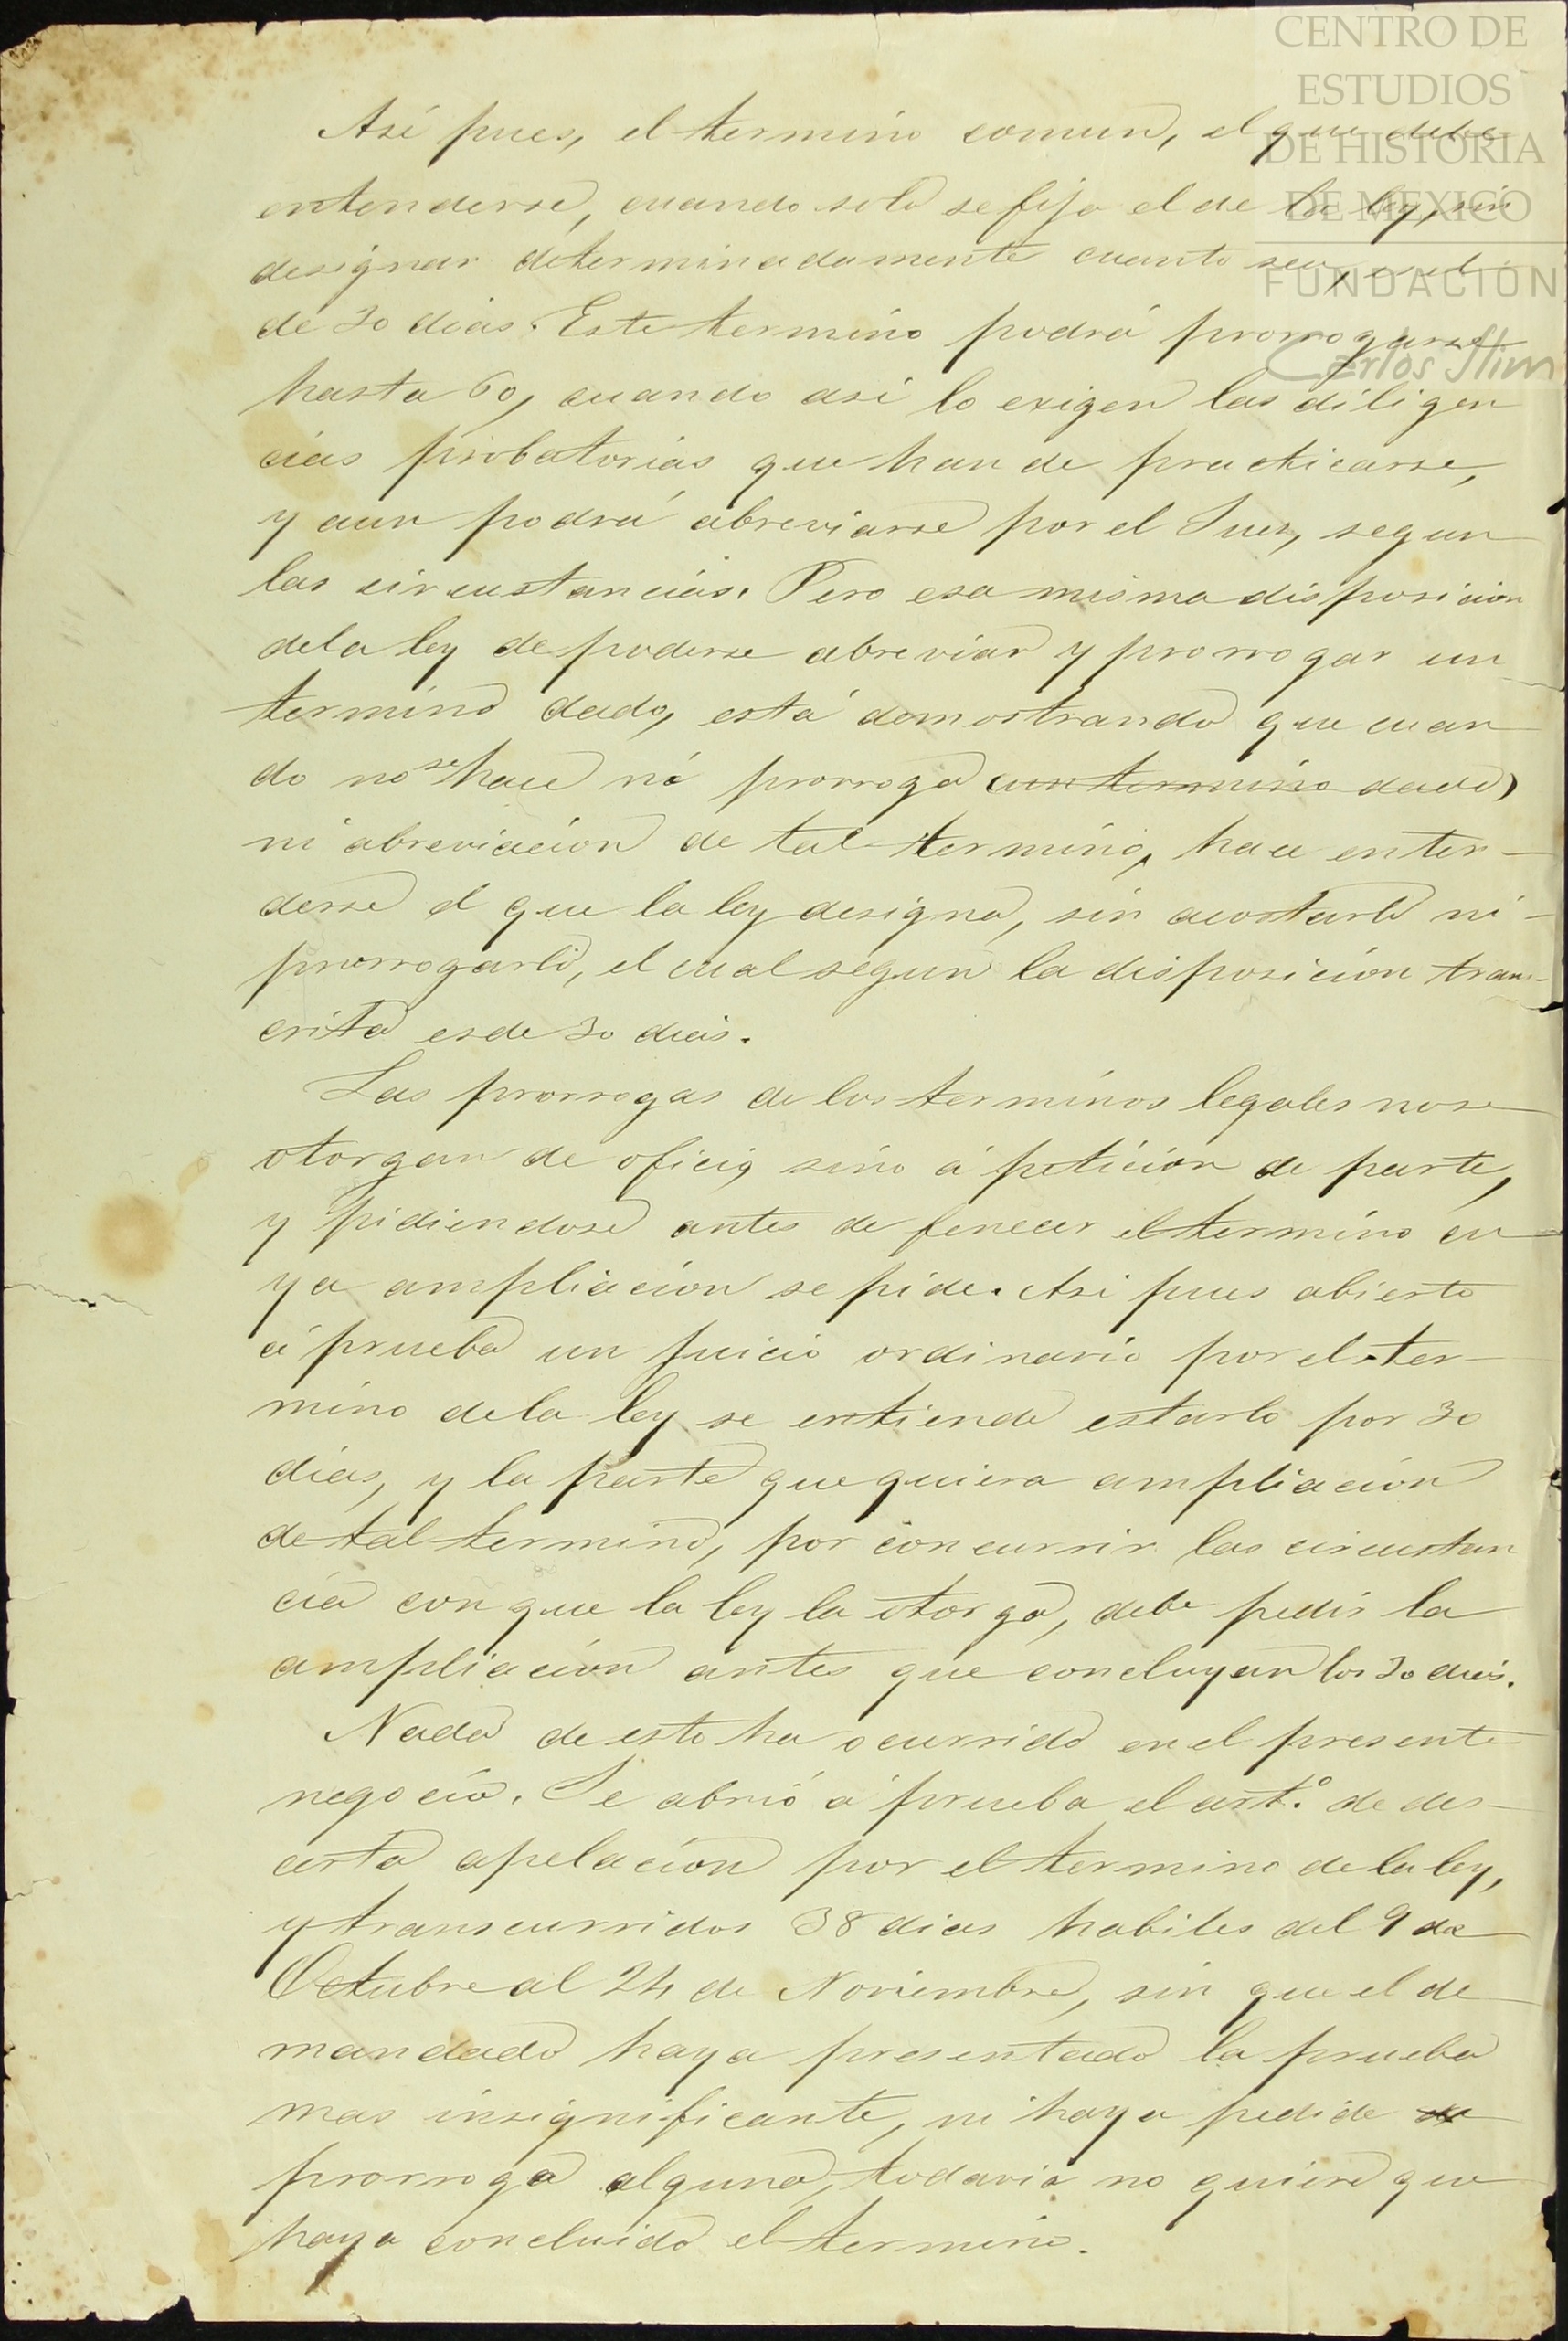 CENTRO DE
ESTUDIOS
DE HISTORIA
DE MEXICO
FUNDACIÓN
Carlos Slim
Asi pues, el termino comun, el que debe
entenderse, cuando solo se fija el de la ley, sin
designar determinadamente cuanto sea, es el
de 30 dias. Este termino podrá prorrogarse
hasta 60, cuando asi lo exigen las diligen
cias probatorias que han de practicarse,
y aun podrá abreviarse por el Juez, segun
las circustancias. Pero esa misma disposicion
de la ley de poderse abreviar y prorrogar un
termino dado, está demostrando que cuan
do no se hace ni prorroga (un termino dado)
ni abreviacion de tal termino, hace enten-
derse el que la ley designa, sin acortarlo ni-
prorrogarlo, el cual segun la disposicion trans-
crita es de 30 dias.
Las prorrogas de los terminos legales no se
otorgan de oficio, sino á peticion de parte,
y pidiendose antes de fenecer el termino cu
ya ampliacion se pide. Asi pues abierto
á prueba un juicio ordinario por el ter-
mino de la ley se entiende estarlo por 30
dias, y la parte que quiera ampliacion
de tal termino, por concurrir las circustan
cia con que la ley la otorga, debe pedir la
ampliacion antes que concluyan los 30 dias.
Nada de esto ha ocurrido en el presente
negocio. Se abrió á prueba el artº. de des-
erta apelacion por el termino de la ley,
y transcurridos 38 dias habiles del 9 de
Octubre al 24 de Noviembre, sin que el de
mandado haya presentado la prueba
mas insignificante, ni haya pedido de
prorroga alguna, todavia no quiere que
haya concluido el termino.